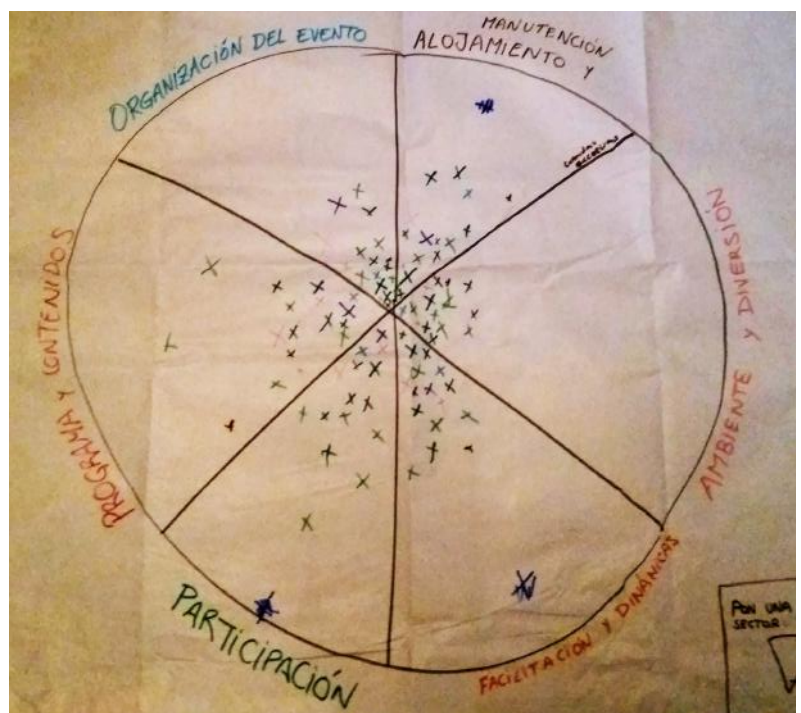 ORGANIZACIÓN DEL EVENTO
MANUTENCIÓN
ALOJAMIENTO Y
AMBIENTE Y DIVERSIÓN
FACILITACIÓN Y DINÁMICAS
PARTICIPACIÓN
PROGRAMA Y CONTENIDOS
PON UNA
SECTOR.